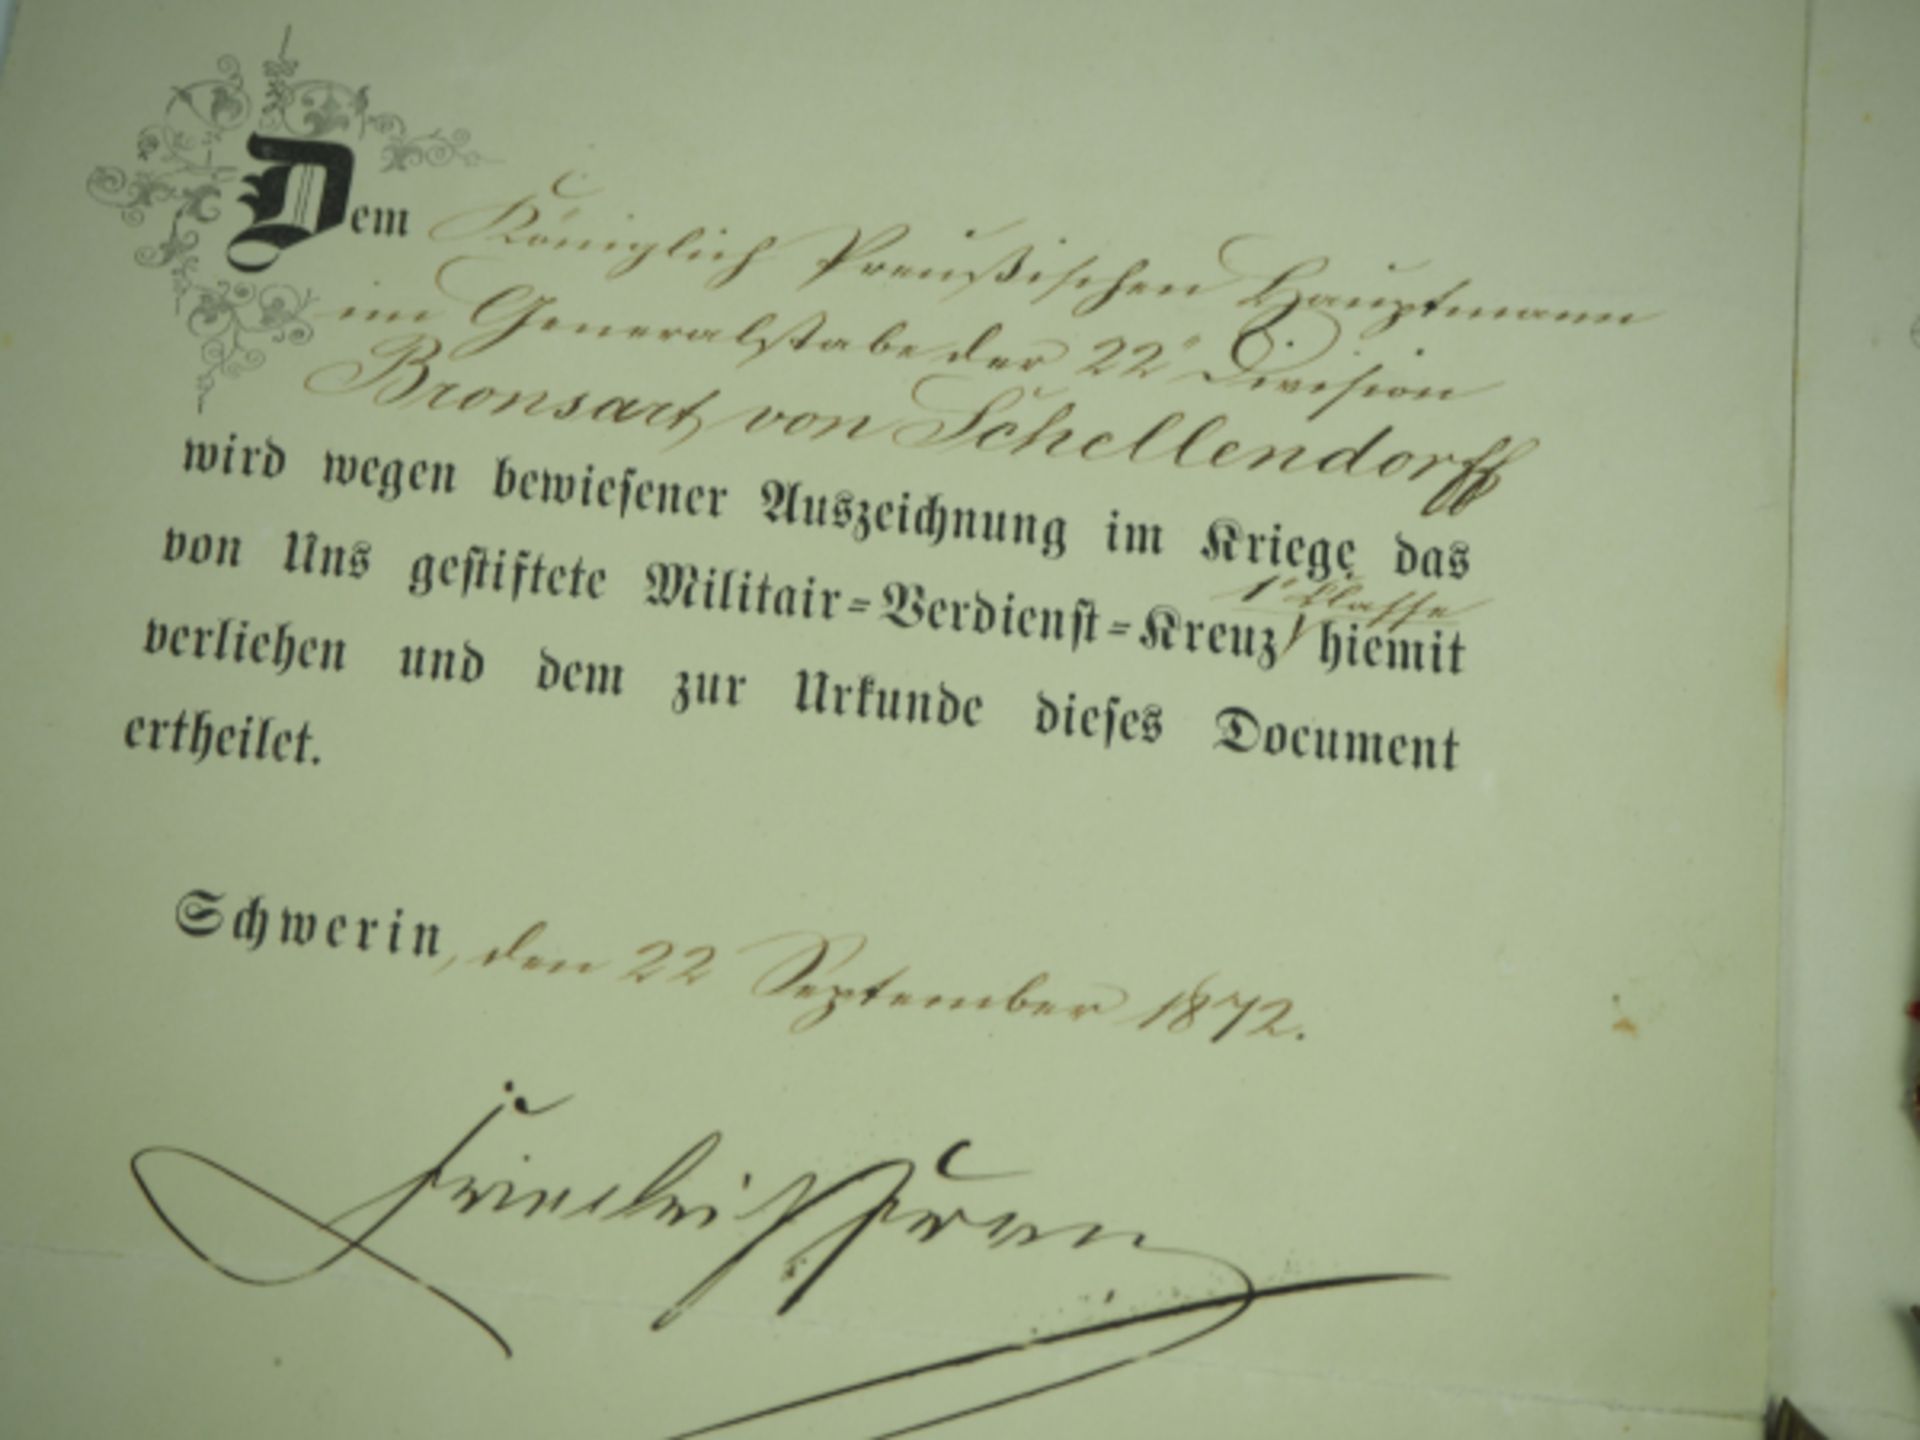 Dem Königlich Preußischen Hauptmann
im Generalstabe der 22ⁿ Division
Bronsart von Schellendorff
wird wegen bewiesener Auszeichnung im Kriege das
1ʳ Classe
von Uns gestiftete Militair-Verdienst-Kreuz hiemit
verliehen und dem zur Urkunde dieses Document
ertheilet.
Schwerin, den 22 September 1872.
Friedrich Franz